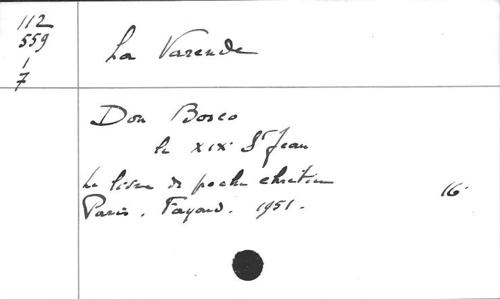 112
559
1
7
La Varende
Don Bosco
le XIXe St Jean
Le livre de poche chrétien
Paris. Fayard. 1951.
16°